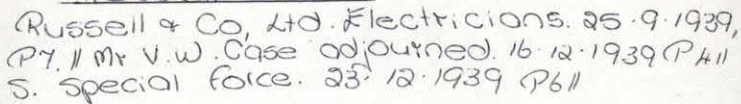 Russell & Co, Ltd. Electricians. 25.9.1939,
P7. // Mr V.W. Case adjourned. 16.12.1939 (P4//
S. Special force. 23. 12.1939 P6//